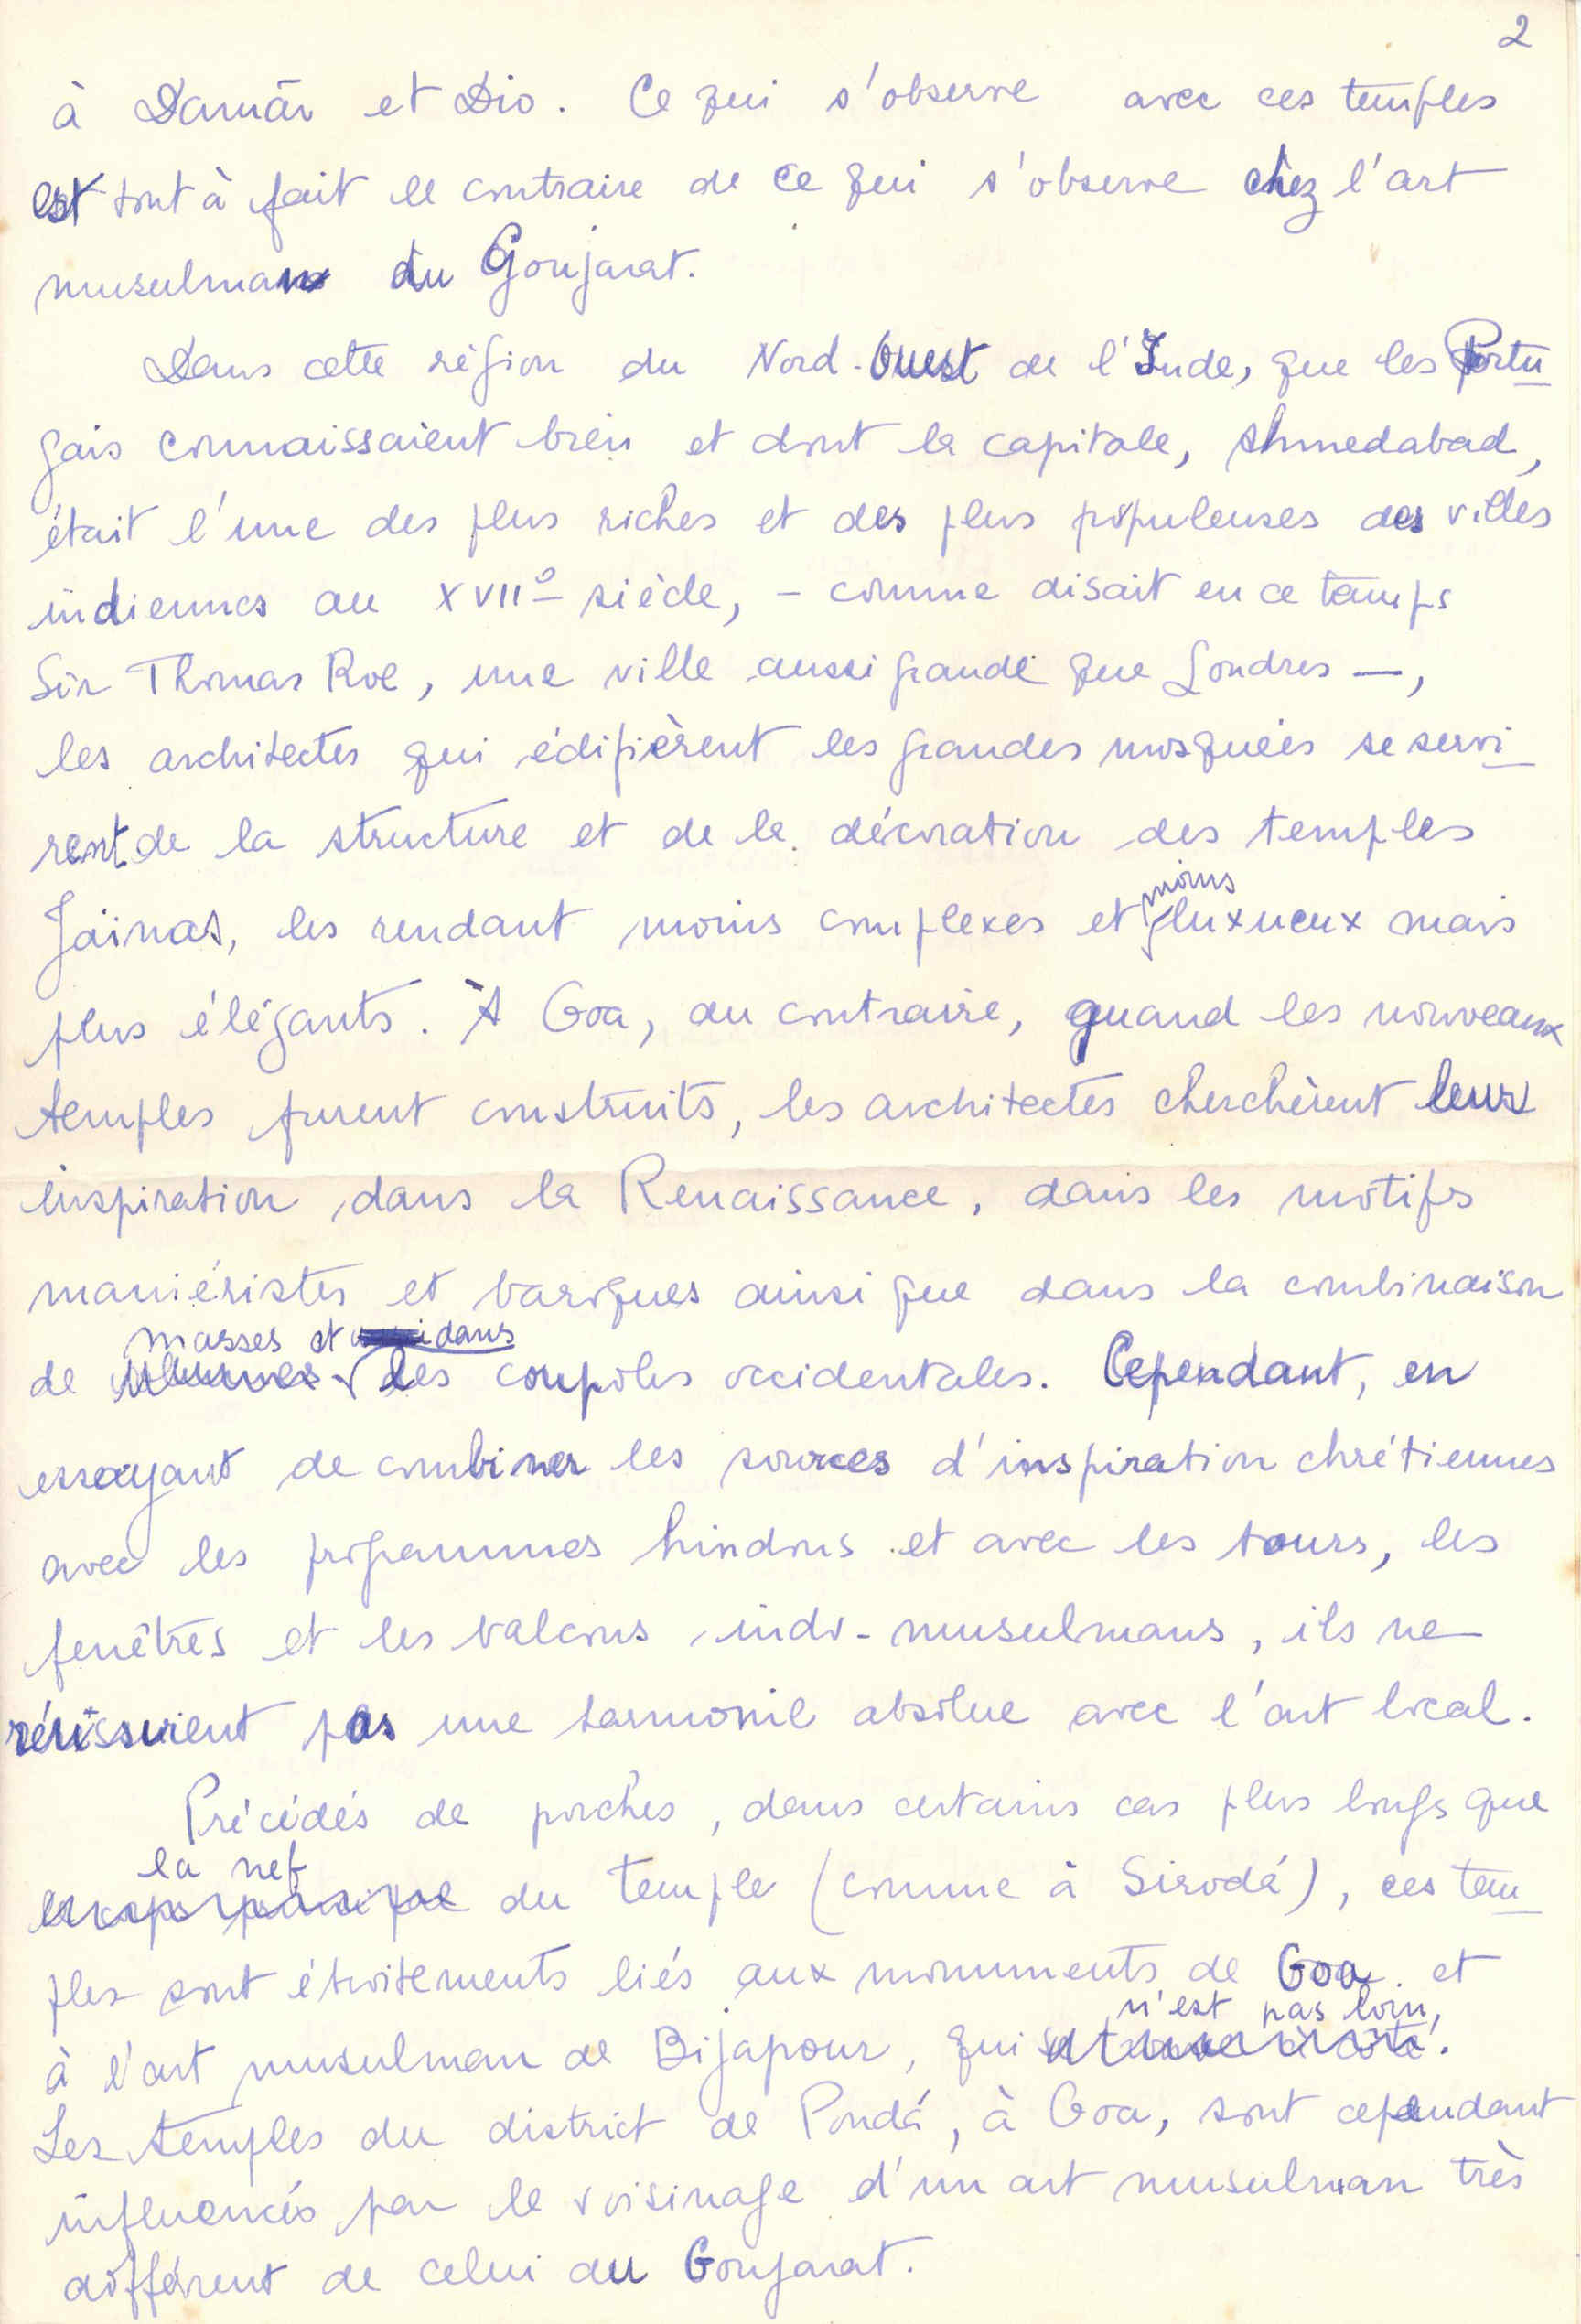 2
à Damão et Dio. Ce qui s'observe avec ces temples
est tout à fait le contraire de ce qui s'observe chez l'art
musulman du Goujarat.
Dans cette région du Nord-Ouest de l'Inde, que les Portu
gais connaissaient bien et dont la capitale, Ahmedabad,
était l'une des plus riches et des plus populeuses des villes
indiennes au XVIIº siècle, – comme disait en ce temps
Sir Thomas Roe, une ville aussi grande que Londres –,
les architectes qui édifièrent les grandes mosquées se servi
rent de la structure et de la décoration des temples
Jaïnas, les rendant moins complexes et moins luxueux mais
plus élégants. À Goa, au contraire, quand les nouveaux
temples furent construits, les architectes cherchèrent leur
inspiration dans la Renaissance, dans les motifs
maniéristes et baroques ainsi que dans la combinaison
de masses et dans les coupoles occidentales. Cependant, en
essayant de combiner les sources d'inspiration chrétiennes
avec les programmes hindous et avec les tours, les
fenêtres et les balcons indo-musulmans, ils ne
réussirent pas une harmonie absolue avec l'art local.
Précédés de porches, dans certains cas plus longs que
la nef du temple (comme à Sirodá), ces tem
ples sont étroitements liés aux monuments de Goa et
à l'art musulman de Bijapour, qui n'est pas loin.
Les temples du district de Pondá, à Goa, sont cependant
influencés par le voisinage d'un art musulman très
différent de celui du Goujarat.